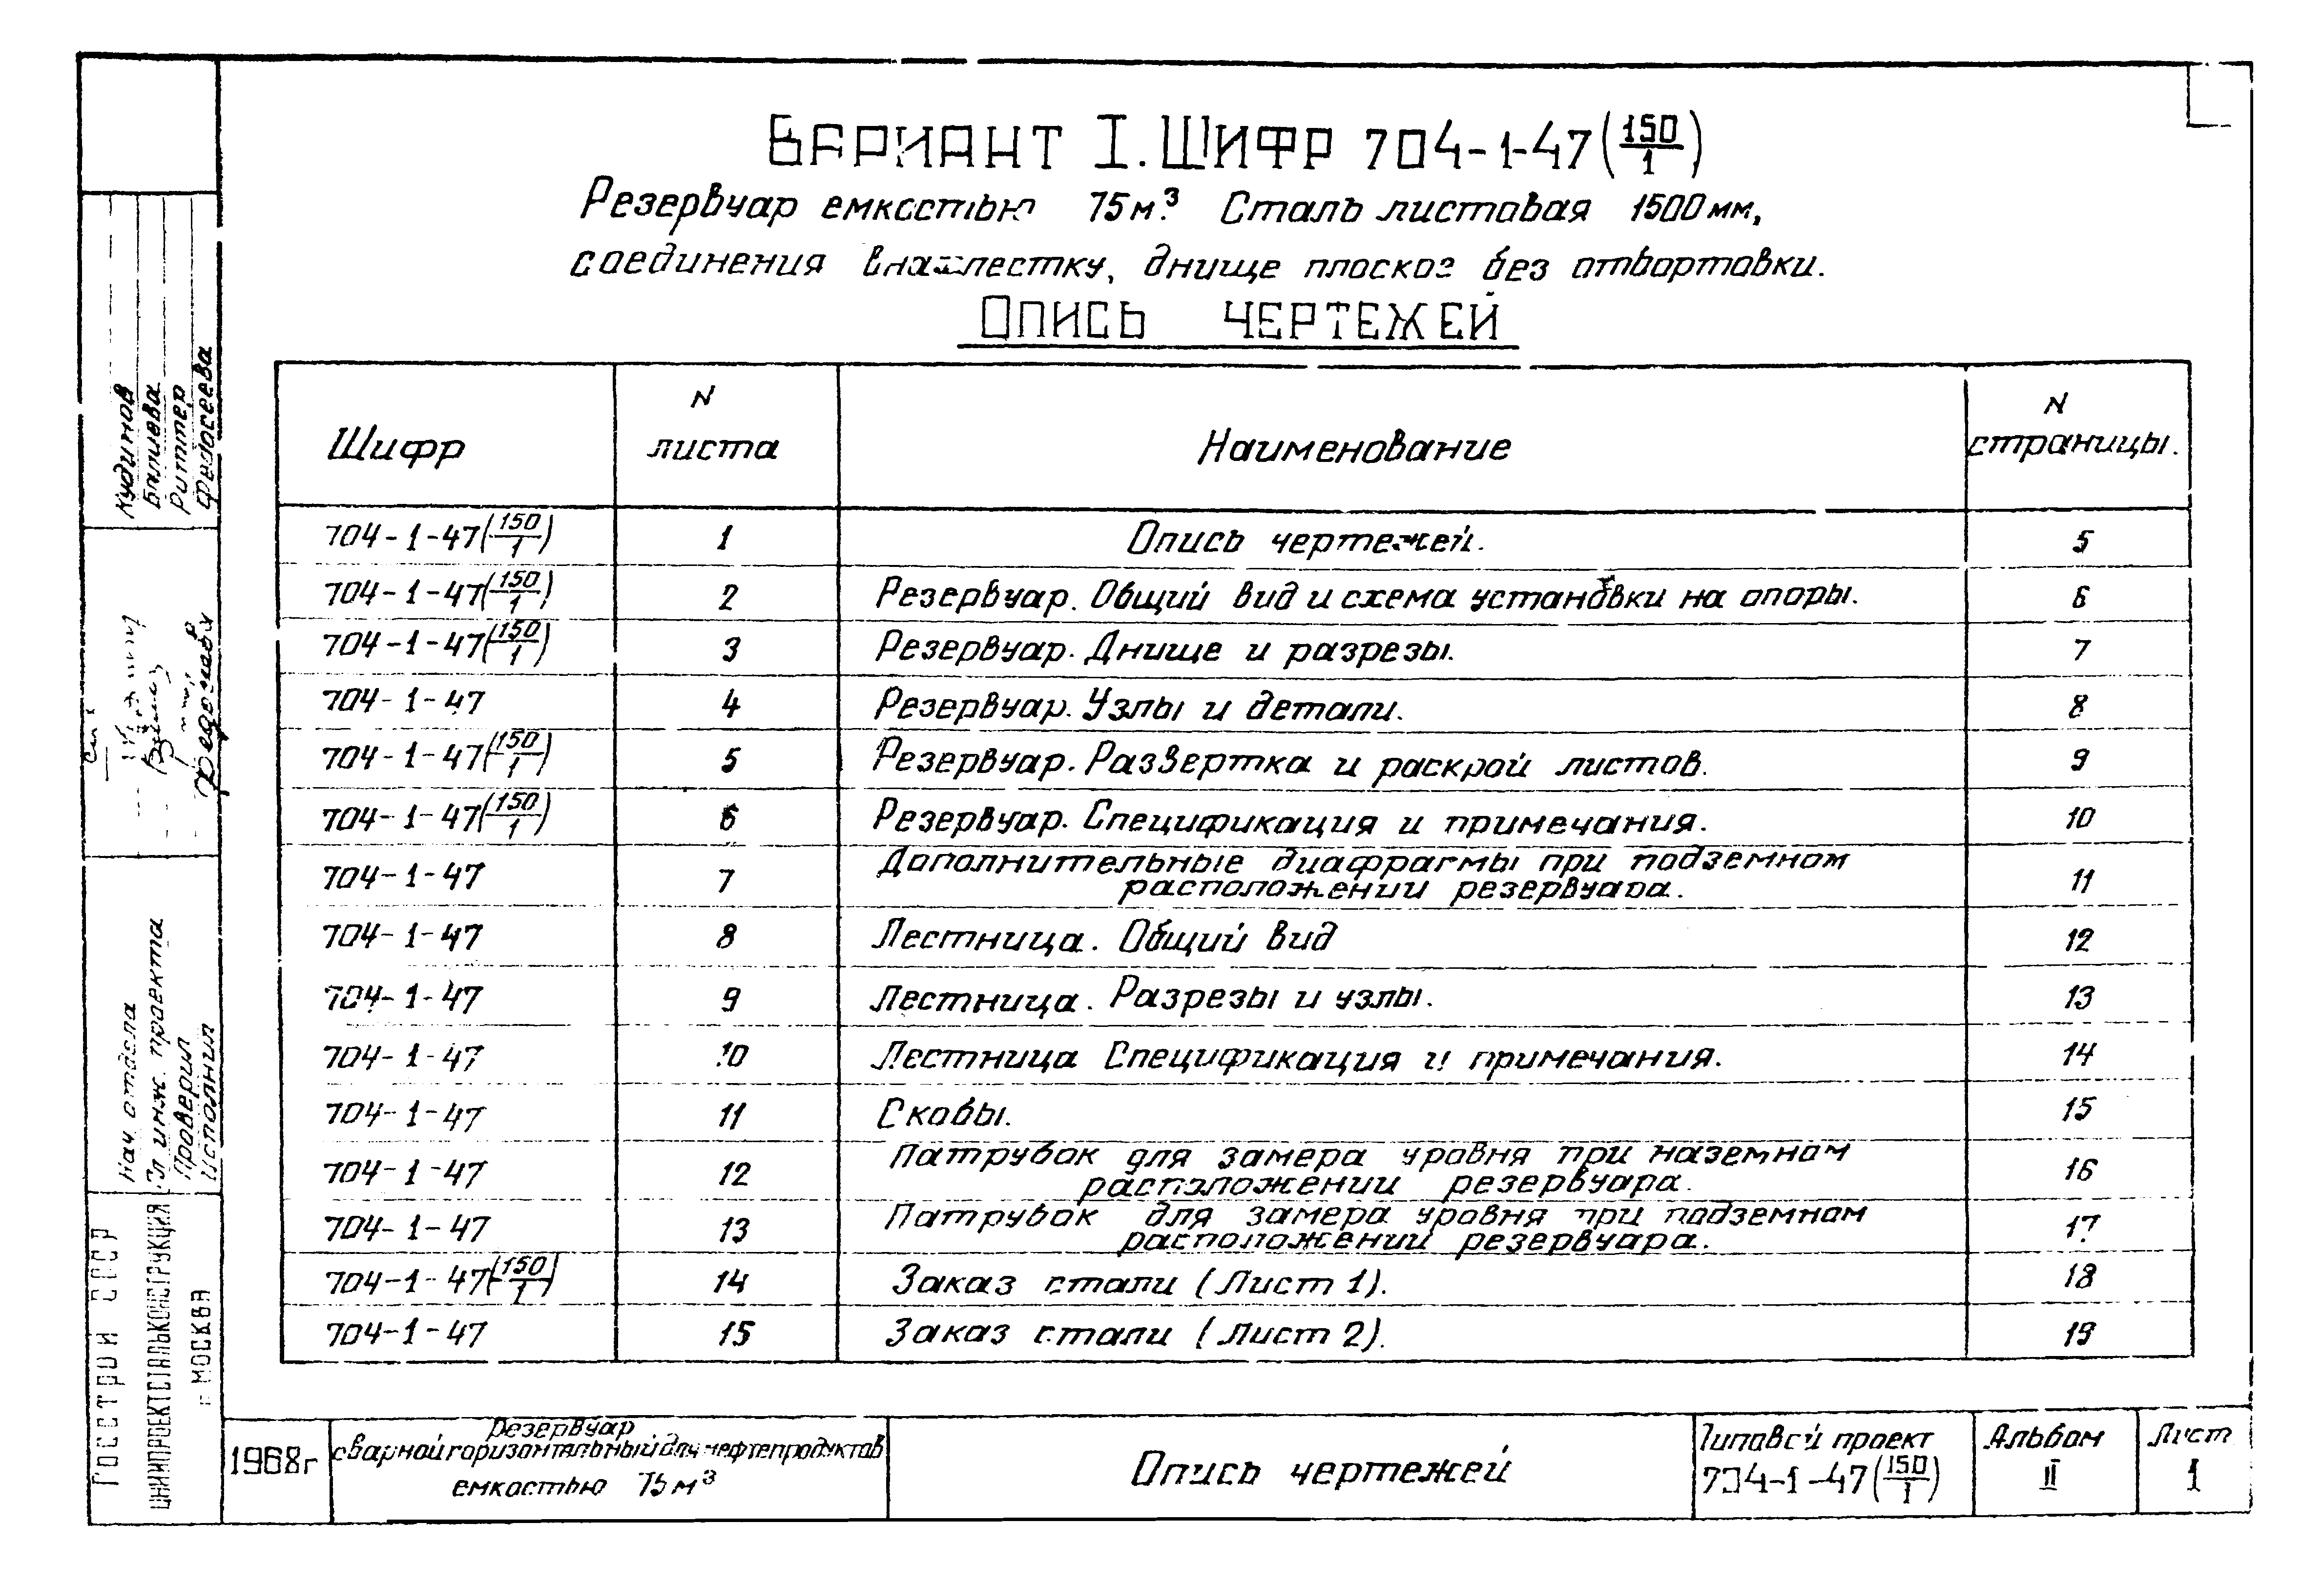 Вариант I. Шифр 704-1-47(150/1)
Резервуар емкостью 75м.³ Сталь листовая 1500мм,
соединения внахлестку, днище плоское без отбортовки.
Опись чертежей
Шифр | N листа | Наименование | N страницы.
704-1-47(150/1) | 1 | Опись чертежей. | 5
704-1-47(150/1) | 2 | Резервуар. Общий вид и схема установки на опоры. | 6
704-1-47(150/1) | 3 | Резервуар. Днище и разрезы. | 7
704-1-47 | 4 | Резервуар. Узлы и детали. | 8
704-1-47(150/1) | 5 | Резервуар. Развертка и раскрой листов. | 9
704-1-47(150/1) | 6 | Резервуар. Спецификация и примечания. | 10
704-1-47 | 7 | Дополнительные диафрагмы при подземном
расположении резервуара. | 11
704-1-47 | 8 | Лестница. Общий вид | 12
704-1-47 | 9 | Лестница. Разрезы и узлы. | 13
704-1-47 | 10 | Лестница Спецификация и примечания. | 14
704-1-47 | 11 | Скобы. | 15
704-1-47 | 12 | Патрубок для замера уровня при наземном
расположении резервуара. | 16
704-1-47 | 13 | Патрубок для замера уровня при подземном
расположении резервуара. | 17
704-1-47(150/1) | 14 | Заказ стали (Лист 1). | 18
704-1-47 | 15 | Заказ стали (Лист 2). | 19
Кудинов
Риттер
Федосеева
Федосеева
Нач отдела
Гл инж. проекта
Проверил
Исполнил
Госстрой СССР
ЦНИИПРОЕКТСТАЛЬКОНСТРУКЦИЯ
г. МОСКВА
1968г
Резервуар
сварной горизонтальный для нефтепродуктов
емкостью 75м³
Опись чертежей
Типовой проект
704-1-47(150/1)
Альбом
II
Лист
1